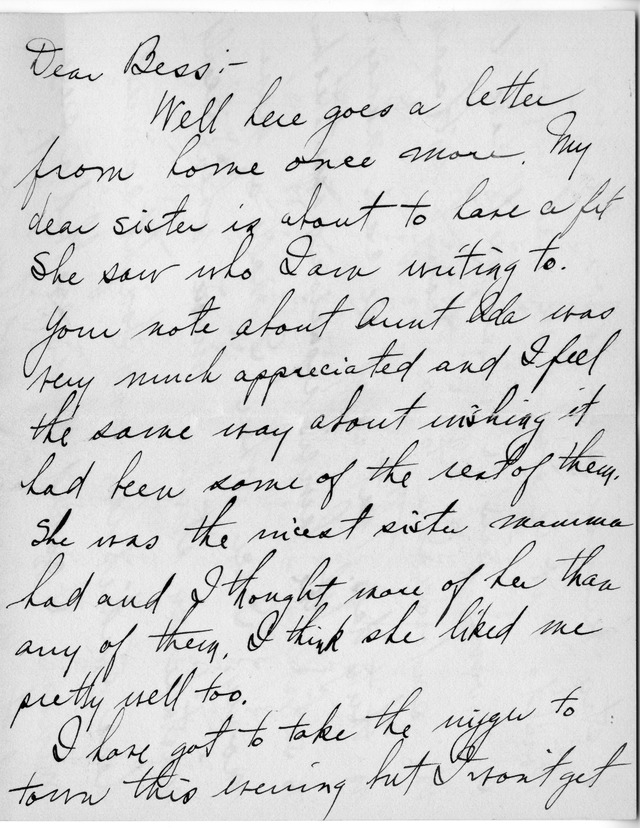 Dear Bess:-
Well here goes a letter
from home once more. My
dear sister is about to have a fit
She saw who I am writing to.
Your note about Aunt Ada was
very much appreciated and I feel
the same way about wishing it
had been some of the rest of them.
She was the nicest sister mamma
had and I thought more of her than
any of them. I think she liked me
pretty well too.
I have got to take the nigger to
town this evening but I won't get